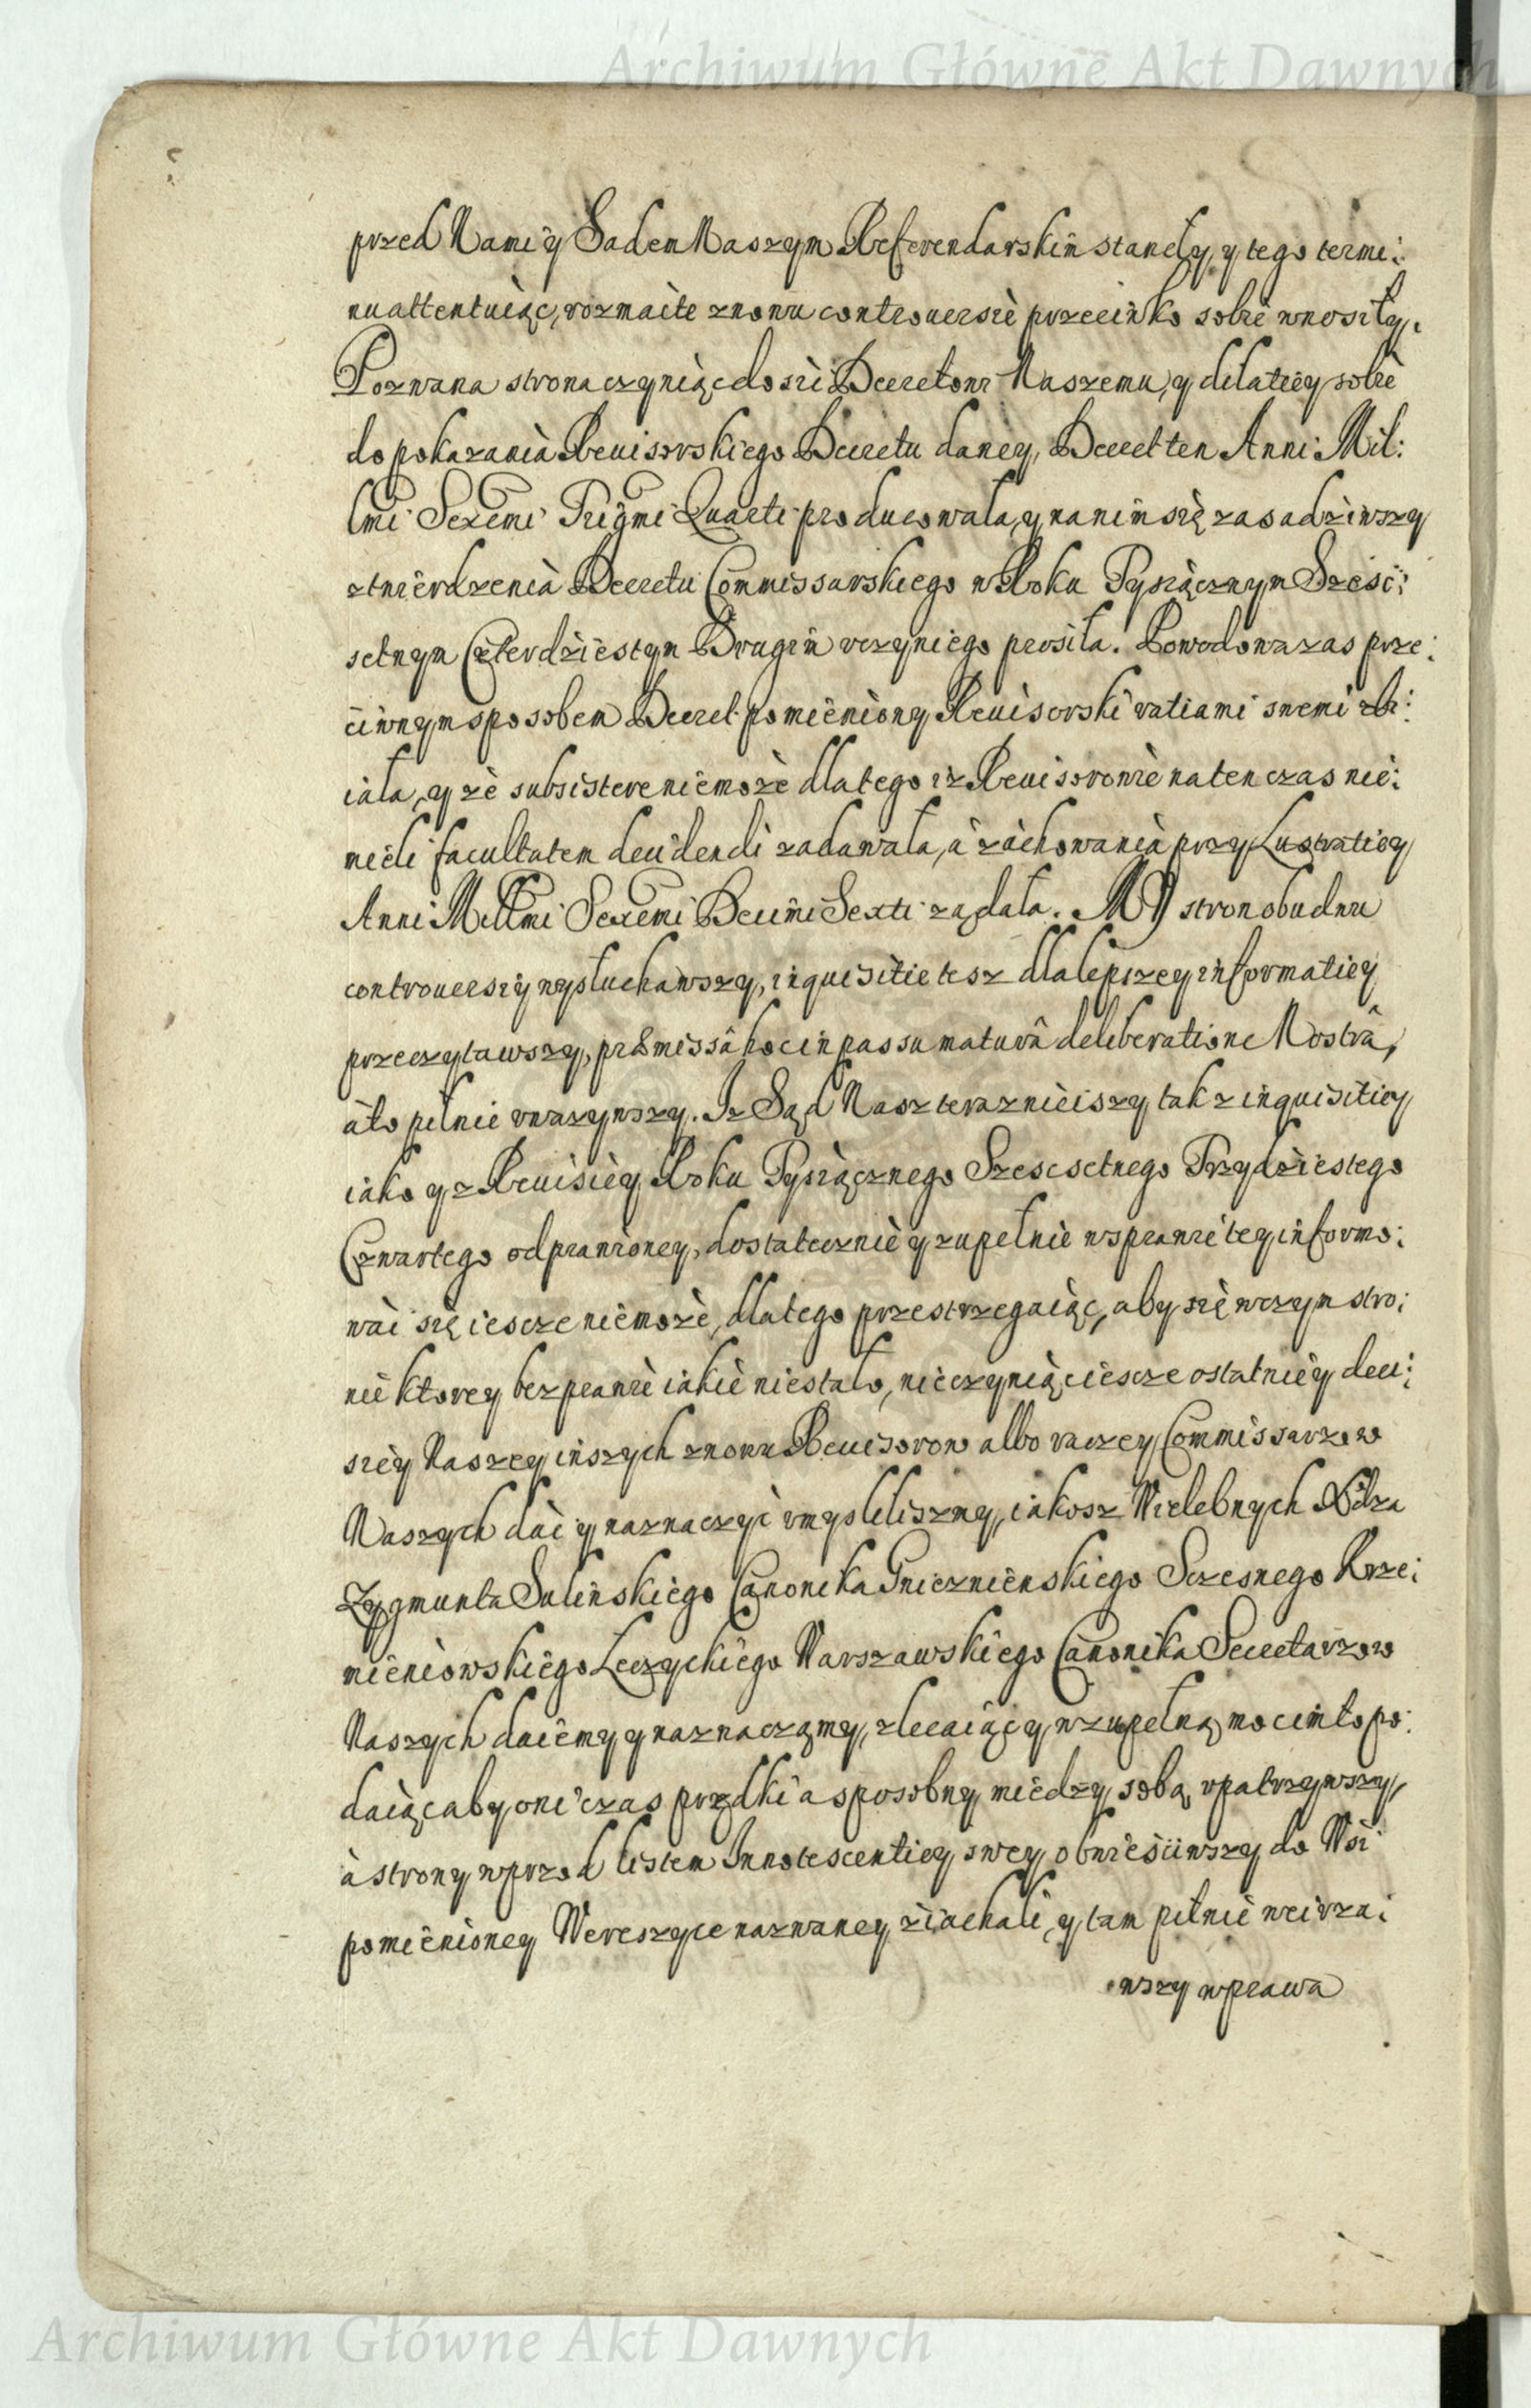 Archiwum Główne Akt Dawnych
przed Nami y Sądem Naszym Referendarskim stanęły, y tego termi:
nu attentuiąc, rozmaite znowu controuersie przeciwko sobie wnosiły.
Pozwana strona czyniąc dosić Decretowi Naszemu, y dilatiey sobie
do pokazania Reuisorskiego Decretu daney, Decret ten Anni Mil:
lmi Sexcmi Trigmi Quarti producowała, y na nim się zasadziwszy
ztwierdzenia Decretu Commissarskiego w Roku Tysiącznym Sześć:
setnym Czterdziestym Drugim vczyniego prosiła. Powodowa zas prze:
ciwnym sposobem Decret pomieniony Reuisorski ratiami swemi zbi:
iała, y że subsistere niemoże dlatego iz Reuisorowie na ten czas nie:
mieli facultatem decidendi zadawała, a zachowania przy Lustratiey
Anni Millmi Sexcmi Decimi Sexti ządała. MY stron obudwu
controuersiy wysłuchawszy, inquisitie tesz dla lepszey informatiey
przeczytawszy, præmissâ hoc in passu maturâ deliberatione Nostrâ,
a to pilnie vważywszy. Iz Sąd Nasz teraznieiszy tak z inquisitiey
iako y z Reuisiey Roku Tysiącznego Szescsetnego Trzydziestego
Czwartego odprawioney, dostatecznie y zupełnie w sprawie tey informo:
wać się iescze niemoże, dlatego przestrzegaiąc, aby się w czym stro:
nie ktorey bezprawie iakie niestało, nieczyniąc iescze ostatniey deci:
siey Naszey inszych znowu Reuisorow albo raczey Commissarzow
Naszych dać y naznaczyć vmysleliszmy, iakosz Wielebnych Xdza
Zygmunta Sulinskiego Canonika Gnieznienskiego Sczesnego Krze:
mieniowskiego Łeczyckiego Warszawskiego Canonika Secretarzow
Naszych daiemy y naznaczamy, zlecaiąc y w zupełną moc im to po:
daiąc aby oni czas prędki a sposobny miedzy sobą vpatrzywszy,
a strony wprzod listem Innotescentiey swey obwieściwszy do Wsi
pomienioney Wereszyce nazwaney ziachali, y tam pilnie weirza:
wszy w prawa
Archiwum Główne Akt Dawnych